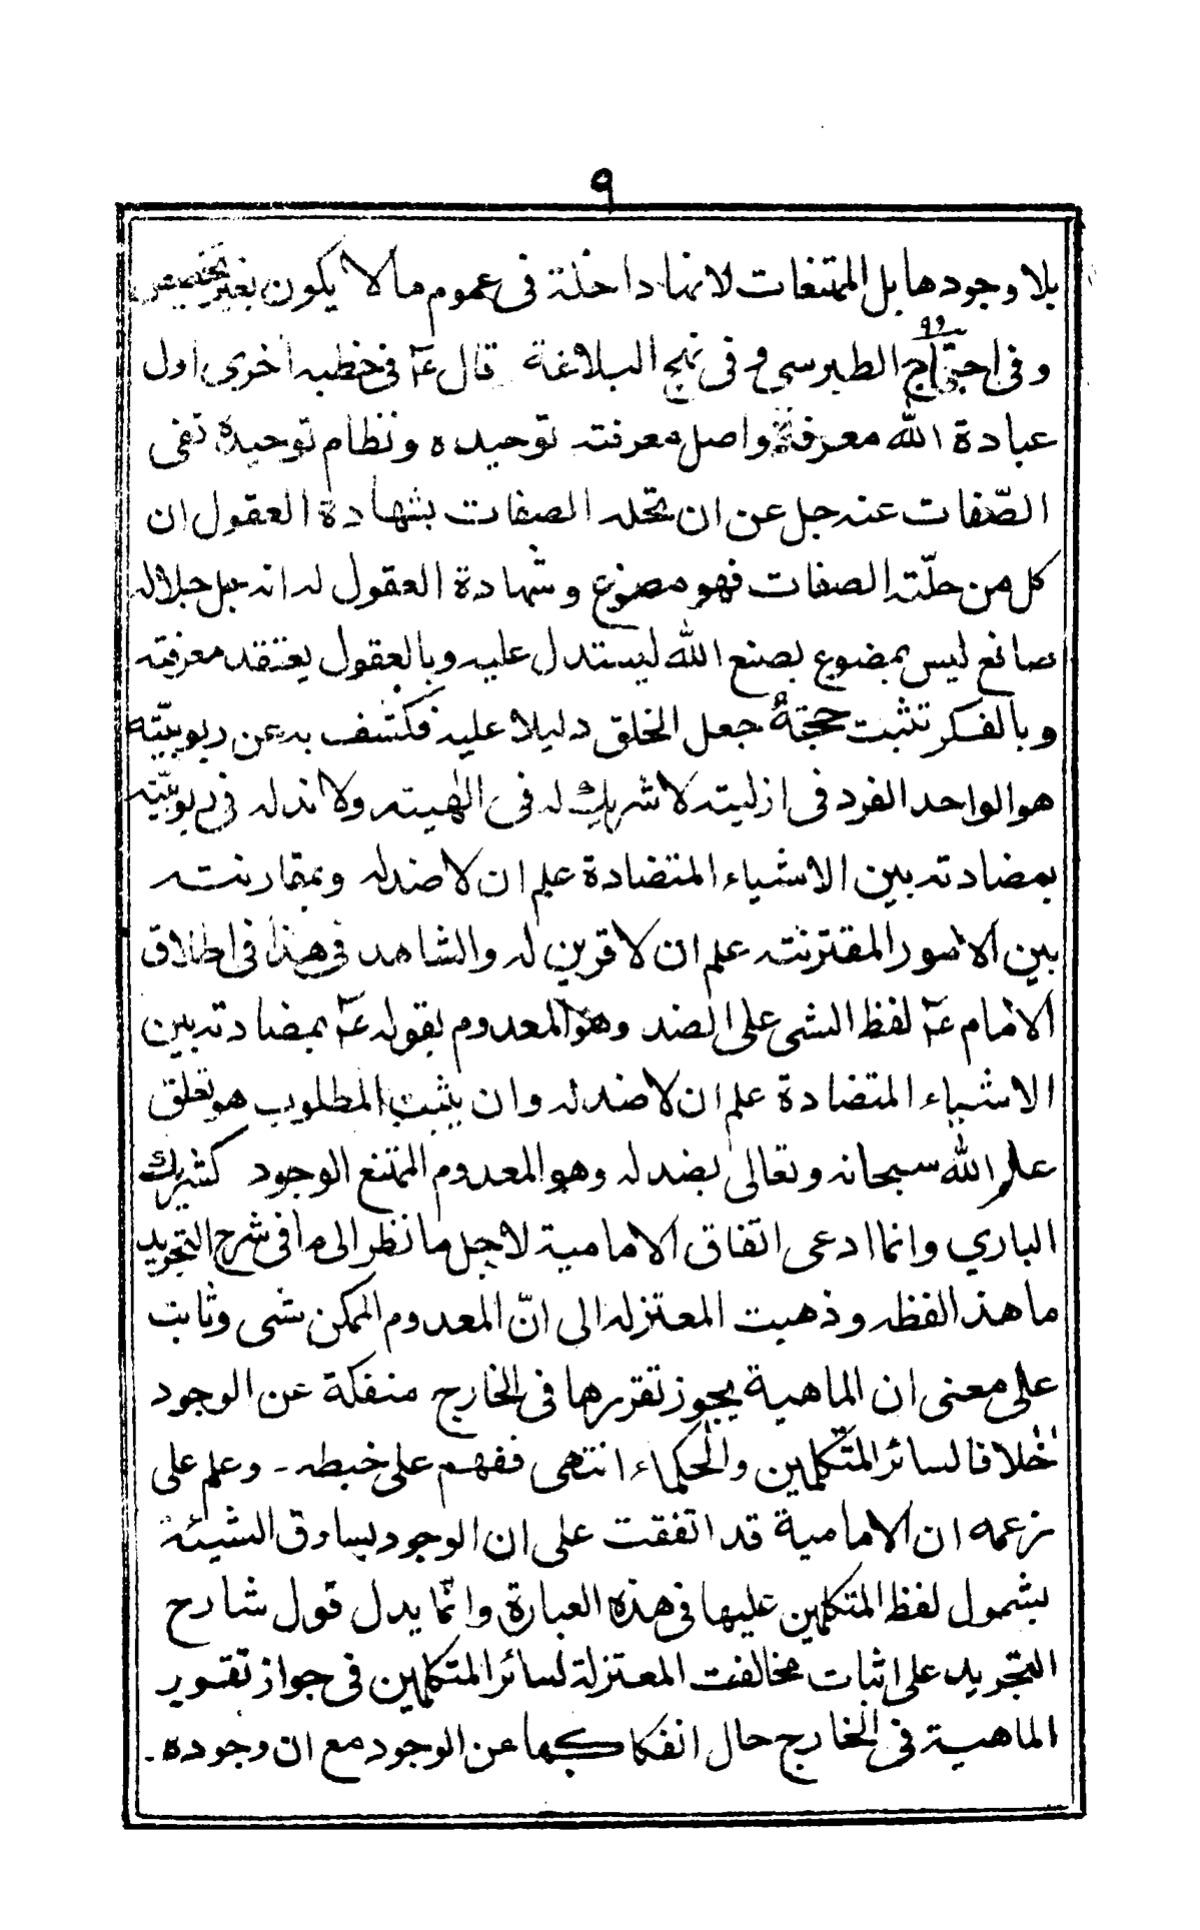 ٩
بلا وجودها بل الممتنعات لانها داخلة فى عموم ما لا يكون بغير تخصيص
وفى احتجاج الطبرسى و فى نهج البلاغة قال ع٢ فى خطبه اخرى اول
عبادة الله معرفته واصل معرفته توحيده ونظام توحيده نفى
الصّفات عنه جل عن ان تحله الصفات بشهادة العقول ان
كل من حلّته الصفات فهو مصنوع وشهادة العقول له انه جل جلاله
صانع ليس بمضوع بصنع الله ليستدل عليه وبالعقول يعتقد معرفته
وبالفكر تثبت حجتهُ جعل الخلق دليلا عليه فكشف به عن ربوبيّته
هو الواحد الفرد فى ازليته لا شريك له فى الٰهيته ولا ند له فى ربوبيّته
بمضادته بين الاشياء المتضادة علم ان لا ضد له وبمقارنته
بين الامور المقترنته علم ان لا قرين له والشاهد فى هذا فى اطلاق
الامام ع٢ لفظ الشى على الضد وهو المعدوم بقوله ع٢ بمضادته بين
الاشياء المتضادة علم ان لا ضد له وان يثبت المطلوب هو تعلق
علم الله سبحانه وتعالى بضد له وهو المعدوم الممتنع الوجود كشريك
الباري وانما ادعى اتفاق الامامية لاجل ما نظر الى ما فى شرح التجريد
ما هذ الفظه وذهبت المعتزله الى انّ المعدوم الممكن شى وثابت
على معنى ان الماهية يجوز تقررها فى الخارج منفكة عن الوجود
خلافا لسائر المتكلمين والحكماء انتهى ففهم على خبطه - وعلم على
زعمه ان الامامية قد اتفقت على ان الوجود يساوق الشيئة
بشمول لفظ المتكلمين عليها فى هذه العبارة وانّما يدل قول شارح
التجريد على اثبات مخالفت المعتزلة لسائر المتكلمين فى جواز تقرير
الماهية فى الخارج حال انفكاكها عن الوجود مع ان وجوده -